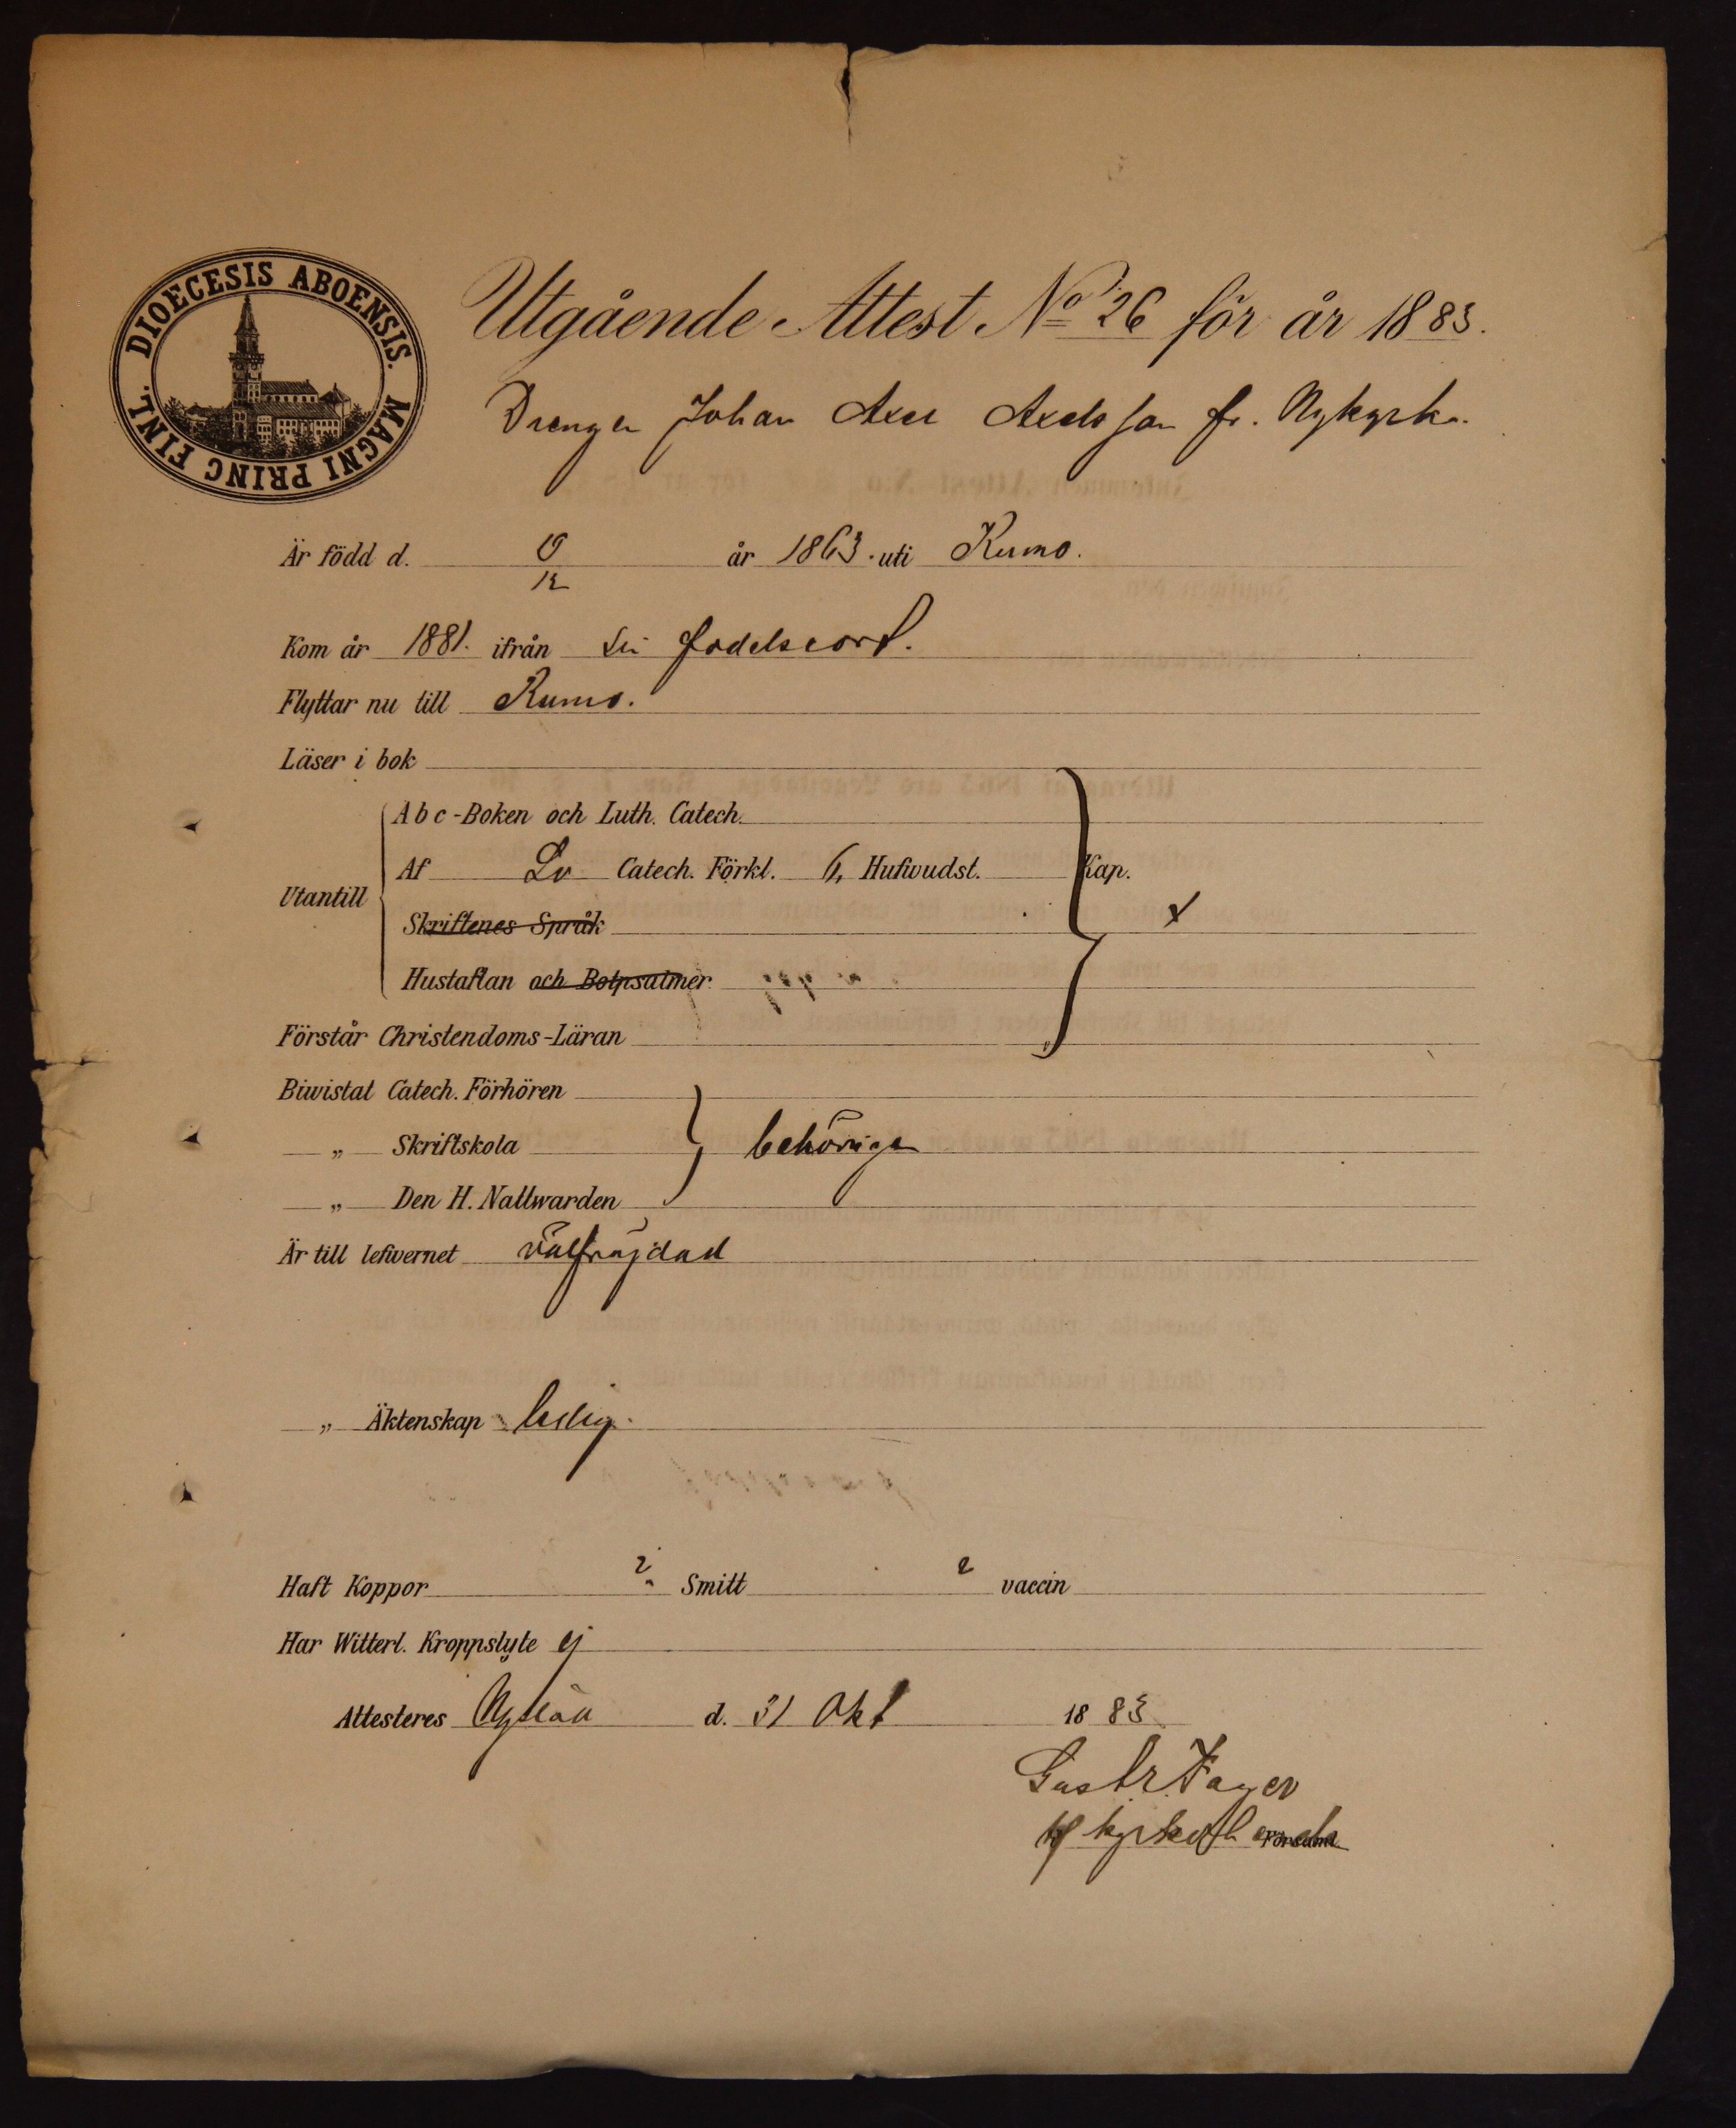 DIOECESIS ABOENSIS. MAGNI PRINC FINL.
Utgående Attest No 26 för år 1883.
Drengen Johan Axel Axelsson fr. Nykyrko.
Är född d. år 1863. uti Kumo.
12
Kom år 1881. ifrån sin födelseort.
Flyttar nu till Kumo.
Läser i bok
Utantill
Abc-Boken och Luth. Catech.
Af Sv Catech. Förkl. 6, Hufwudst. Kap.
Skriftenes Språk
Hustaflan och Botpsalmer
Förstår Christendoms-Läran
Biwistat Catech. Förhören
„ Skriftskola behörigen
„ Den H. Nattwarden
Är till lefwernet välfrägdad
„ Äktenskap ledig.
Haft Koppor Smitt vaccin
Har Witterl. Kroppslyte ej
Attesteres Nystad d. 31 Okt 1883
Gust. Fager
Församl.